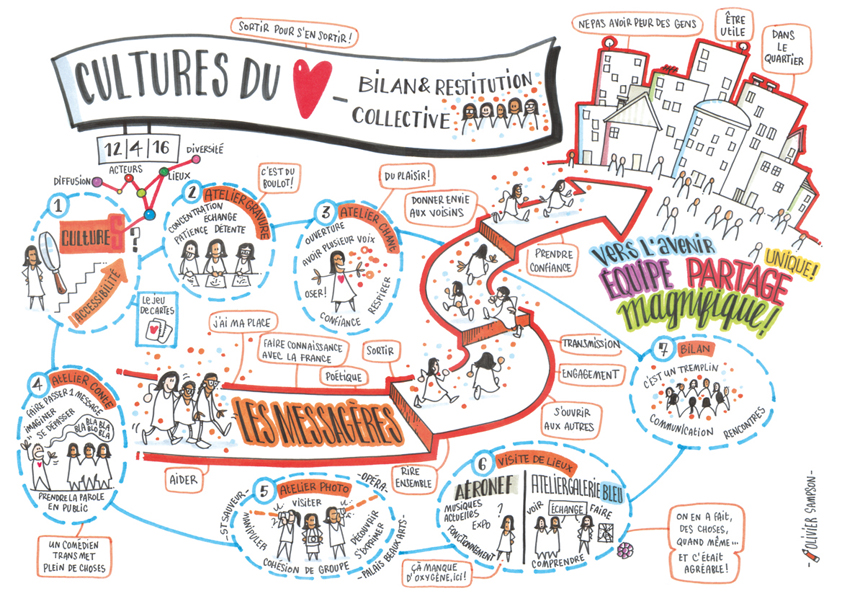 SORTIR POUR S'EN SORTIR !
CULTURES DU
- BILAN & RESTITUTION
COLLECTIVE
NE PAS AVOIR PEUR DES GENS
ÊTRE
UTILE
DANS
LE
QUARTIER
12|4|16
DIFFUSION
ACTEURS
LIEUX
DIVERSITÉ
1
CULTURES ?
ACCESSIBILITÉ
2
ATELIER GRAVURE
CONCENTRATION
ÉCHANGE
PATIENCE DÉTENTE
C'EST DU
BOULOT !
3
ATELIER CHANT
OUVERTURE
AVOIR PLUSIEUR VOIX
OSER !
CONFIANCE
RESPIRER
DU PLAISIR !
DONNER ENVIE
AUX VOISINS
PRENDRE
CONFIANCE
VERS L'AVENIR
ÉQUIPE PARTAGE
UNIQUE !
magnifique !
LE JEU
DE CARTES
J'AI MA PLACE
FAIRE CONNAISSANCE
AVEC LA FRANCE
POÉTIQUE
SORTIR
TRANSMISSION
ENGAGEMENT
S'OUVRIR
AUX AUTRES
LES MESSAGÈRES
AIDER
RIRE
ENSEMBLE
4
ATELIER CONTE
FAIRE PASSER 1 MESSAGE
IMAGINER
SE DÉPASSER
BLA BLA
BLA
BLO BLA
PRENDRE LA PAROLE
EN PUBLIC
UN COMÉDIEN
TRANSMET
PLEIN DE CHOSES
5
ATELIER PHOTO
VISITER
- ST SAUVEUR -
MANIPULER
- OPÉRA -
DÉCOUVRIR
S'EXPRIMER
- PALAIS BEAUX ARTS -
COHÉSION DE GROUPE
6
VISITE DE LIEUX
AÉRONEF
MUSIQUES
ACTUELLES
EXPO
?
FONCTIONNEMENT ?
ATELIER GALERIE BLEU
VOIR
ÉCHANGE
FAIRE
COMPRENDRE
ÇÀ MANQUE
D'OXYGÈNE, ICI !
7
BILAN
C'EST UN TREMPLIN
COMMUNICATION
RENCONTRES
ON EN A FAIT,
DES CHOSES,
QUAND MÊME...
ET C'ÉTAIT
AGRÉABLE !
- OLIVIER SAMPSON -